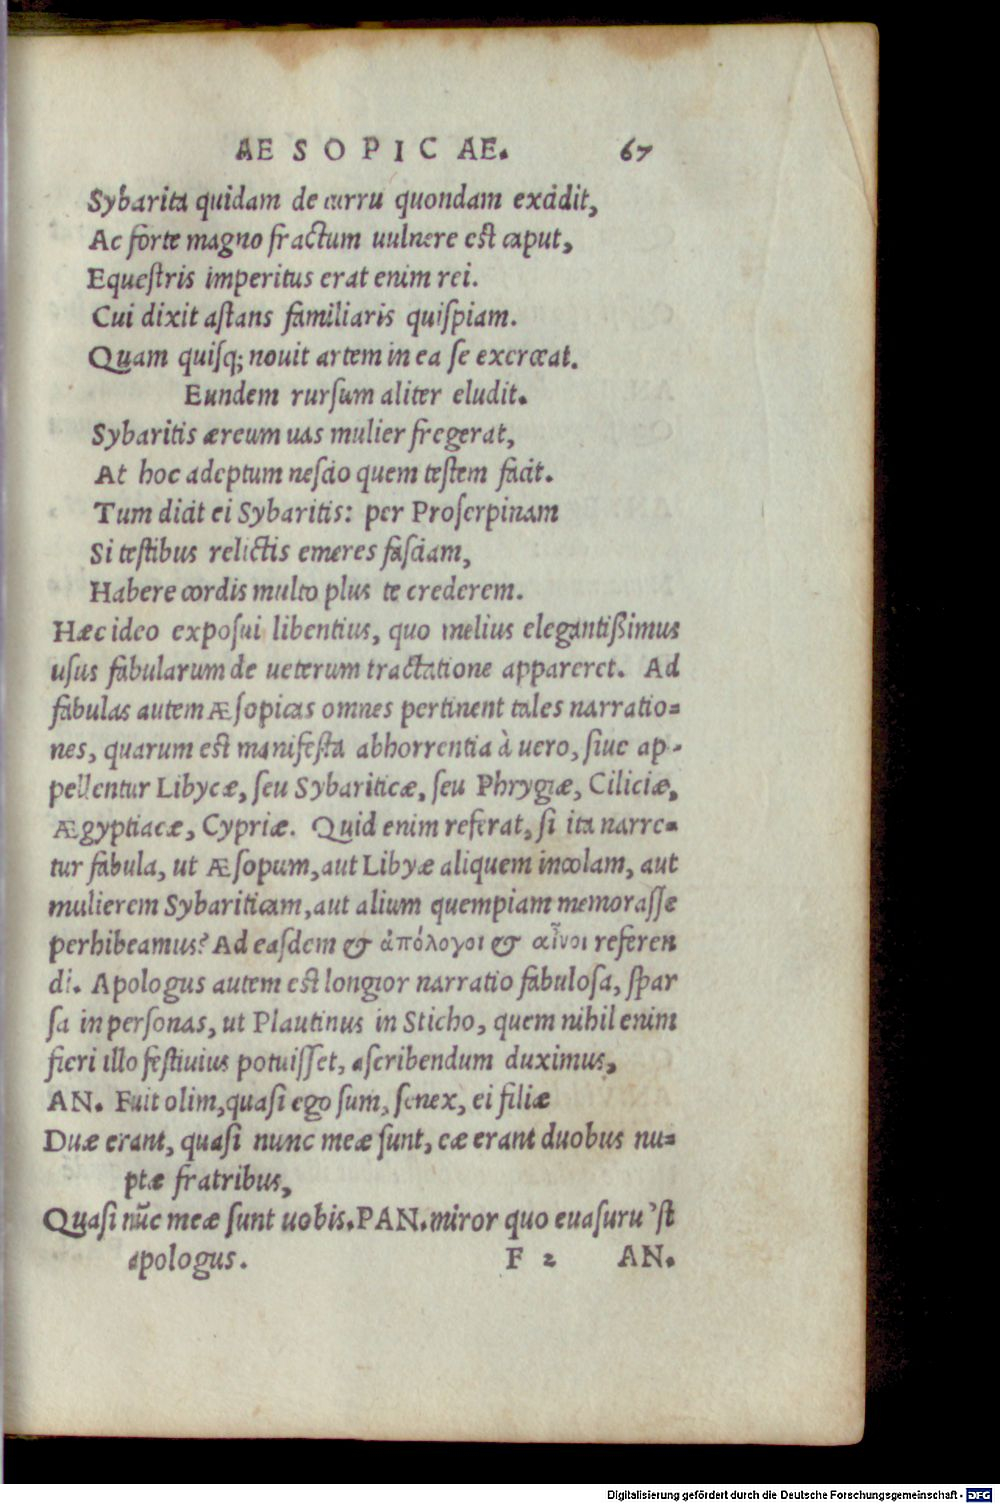 AESOPICAE. 67
Sybarita quidam de curru quondam excidit,
Ac forte magno fractum uulnere est caput,
Equestris imperitus erat enim rei.
Cui dixit astans familiaris quispiam.
Quam quisq; nouit artem in ea se exerceat.
Eundem rursum aliter eludit.
Sybaritis æreum uas mulier fregerat,
At hoc adeptum nescio quem testem facit.
Tum dicit ei Sybaritis: per Proserpinam
Si testibus relictis emeres fasciam,
Habere cordis multo plus te crederem.
Hæc ideo exposui libentius, quo melius elegantißimus
usus fabularum de ueterum tractatione appareret. Ad
fabulas autem Æsopicas omnes pertinent tales narratio=
nes, quarum est manifesta abhorrentia à uero, siue ap-
pellentur Libycæ, seu Sybariticæ, seu Phrygiæ, Ciliciæ,
Ægyptiacæ, Cypriæ. Quid enim referat, si ita narre=
tur fabula, ut Æsopum, aut Libyæ aliquem incolam, aut
mulierem Sybariticam, aut alium quempiam memorasse
perhibeamus? Ad easdem & ἀπόλογοι & αἶνοι referen
di. Apologus autem est longior narratio fabulosa, spar
sa in personas, ut Plautinus in Sticho, quem nihil enim
fieri illo festiuius potuisset, ascribendum duximus,
AN. Fuit olim, quasi ego sum, senex, ei filiæ
Duæ erant, quasi nunc meæ sunt, eæ erant duobus nu=
ptæ fratribus,
Quasi nũc meæ sunt uobis. PAN. miror quo euasuru'st
apologus. F 2 AN.
Digitalisierung gefördert durch die Deutsche Forschungsgemeinschaft - DFG